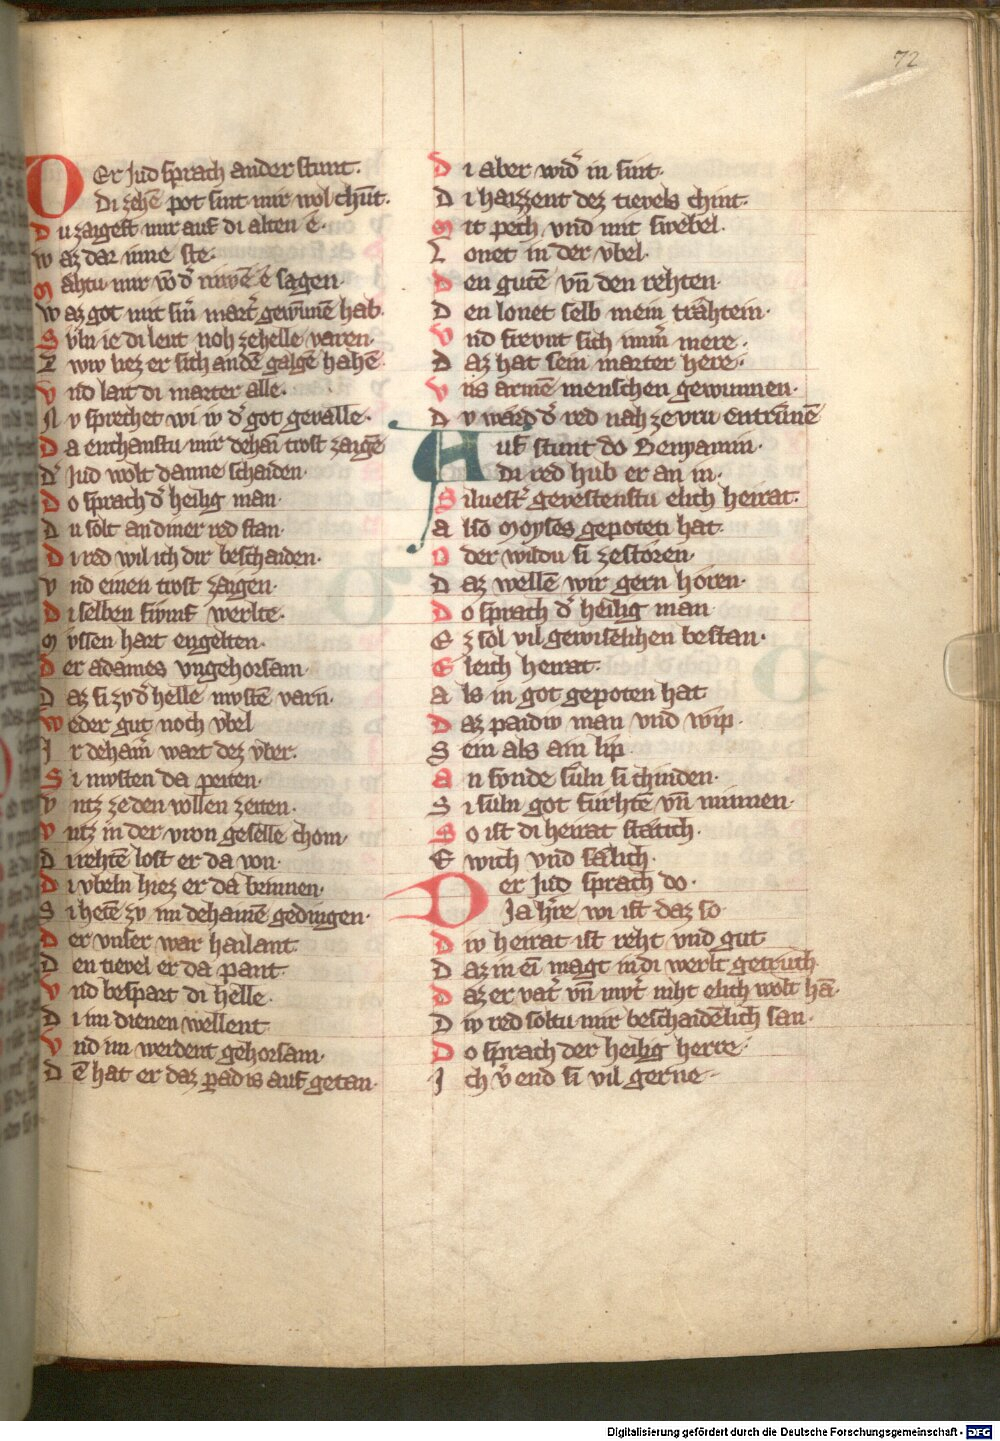 72
Er Jud sprach ander stunt.
Di zehē pot sint mir wol chūt.
D u zaigest mir auf di alten e.
w az dar inne ste.
M ahtu mir vō d̄ niwē e sagen.
w az got mit sīn mart̄ gewunnē hab.
S vln ie di leut noh ze helle varen.
Z wiv liez er sich an dē galgē hahē
V nd lait di marter alle.
N v sprechet wi iv d̄ got gevalle.
D a enchanstu mir dehaī trost zaigē
D̄ Jud wolt danne schaiden.
D o sprach d̄ heilig man.
D u solt an diner red stan.
D i red wil ich dir beschaiden.
v nd einen trost zaigen.
D i selben fivmf werlte.
M vssen hart engelten.
D er adames vngehorsam.
D az si zv d̄ helle mvstē varn.
W eder gut noch vbel
I r dehaīn wart dez vber.
S i mvsten da peiten.
v ntz ze den vollen zeiten.
V ntz in der vron geselle chom.
D i rehtē lost er da von.
D i vbeln hiez er da brinnen.
S i hetē zv im dehainē gedingen.
D er vnser war hailant
D en tievel er da pant
V nd bespart di helle.
D i im dienen wellent
V nd im werdent gehorsam.
D ē hat er daz padis auf getan.
D i aber wid̄ in sint.
D i haizzent dez tievels chint.
M it pech vnd mit swebel.
L onet in der vbel.
D en gutē vn̄ den rehten.
D en lonet selb mein trähtein.
V nd frevnt sich imm̄ mere.
D az hat sein marter here.
V ns armē menschen gewunnen.
D v ward d̄ red nah ze vrn entrunnē
Auf stunt do Benyamin.
Di red hub er an in.
S iluest̄ gevestenstu elich heirat.
a lso Moyses gepoten hat.
O der wildu si zestören.
D az wellē wir gern hören.
D o sprach d̄ heilig man
E z sol vil gewislichen bestan.
E leich heirat.
A ls in got gepoten hat
D az paidiv man vnd wip.
S ein als ain lip.
A n svnde suln si chinden.
S i suln got fürhtē vn̄ minnen.
S o ist di heirat stätich.
E wich vnd sälich.
Der Jud sprach do.
Ja h̄re wi ist daz so
D iv heirat ist reht vnd gut
D az in eī magt in di werlt getruch.
D az er vat̄ vn̄ mvt̄ niht elich wolt hā.
D iv red soltu mir beschaidēlich san.
D o sprach der heilig herre.
I ch v̄end si vil gerne.
Digitalisierung gefördert durch die Deutsche Forschungsgemeinschaft - DFG